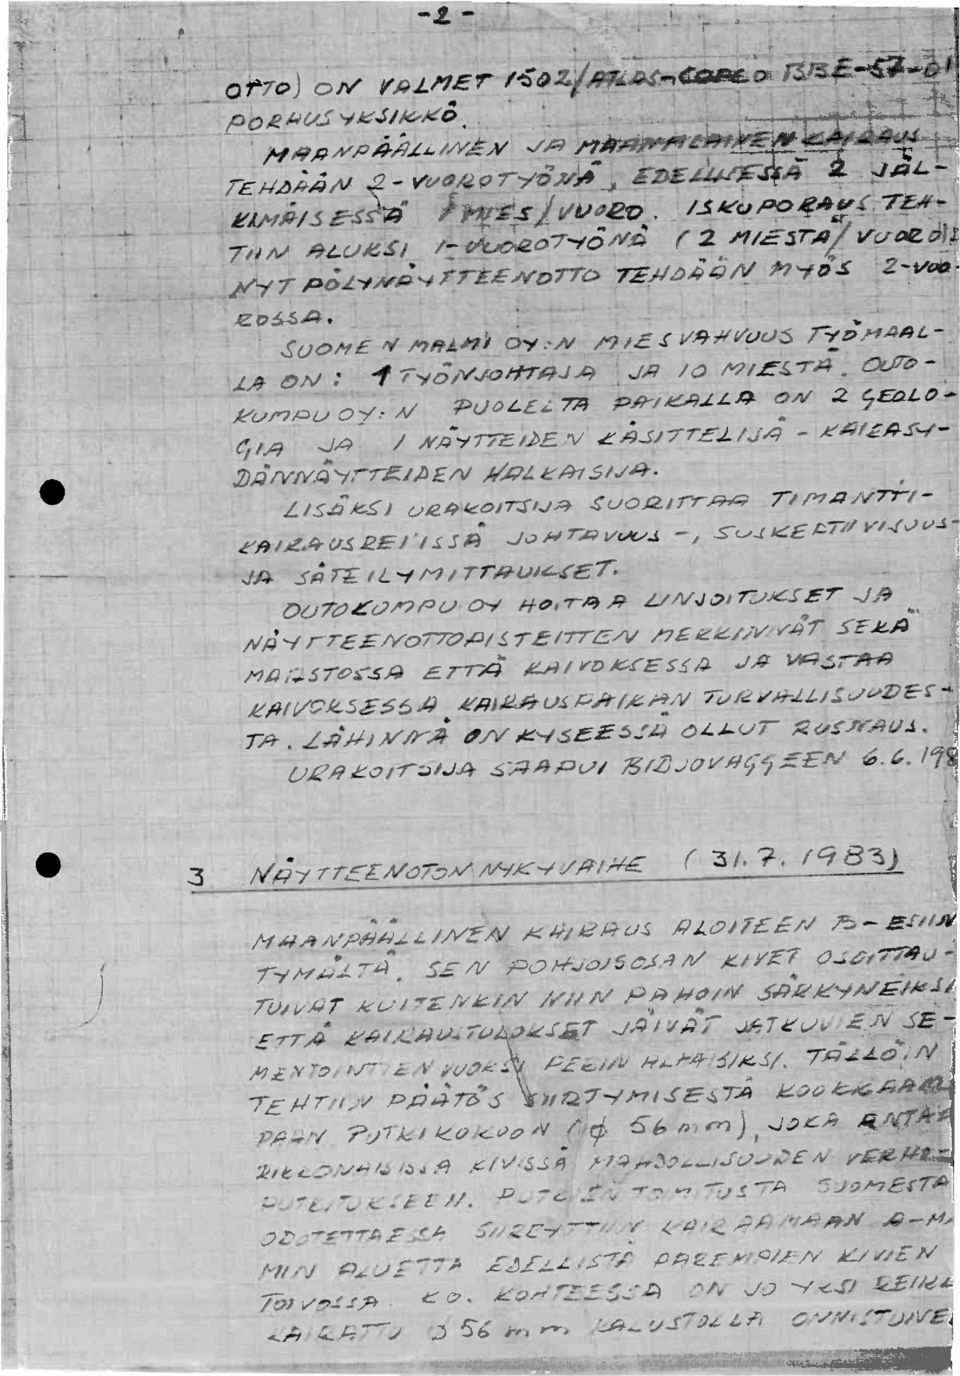 -2-
OTTO) ON VALMET 1502/ATLAS-COPCO BBE-57-01
PORAUSYKSIKKÖ.
MAANPÄÄLLINEN JA MAANALAINEN KAIRAUS
TEHDÄÄN 2-VUOROTYÖNÄ, EDELLISESSÄ 2 JÄL-
KIMÄISESSÄ 1 MIES/VUORO. ISKUPORAUS TEH-
TIIN ALUKSI 1-VUOROTYÖNÄ (2 MIESTÄ/VUORO)
NYT PÖLYNÄYTTEENOTTO TEHDÄÄN MYÖS 2-VUO-
ROSSA.
SUOMEN MALMI OY:N MIESVAHVUUS TYÖMAAL-
LA ON: 1 TYÖNJOHTAJA JA 10 MIESTÄ. OUTO-
KUMPU OY:N PUOLELTA PAIKALLA ON 2 GEOLO-
GIA JA 1 NÄYTTEIDEN KÄSITTELIJÄ - KAIRASY-
DÄNNÄYTTEIDEN HALKAISIJA.
LISÄKSI URAKOITSIJA SUORITTAA TIMANTTI-
KAIRAUSREI'ISSÄ JOHTAVUUS-, SUSKEPTIIVISUUS-
JA SÄTEILYMITTAUKSET.
OUTOKUMPU OY HOITAA LINJOITUKSET JA
NÄYTTEENOTTOPAISTEITTEN MERKINNÄT SEKÄ
MAASTOSSA ETTÄ KAIVOKSESSA JA VASTAA
KAIVOKSESSA KAIRAUSPAIKAN TURVALLISUUDES-
TA. LÄHINNÄ ON KYSEESSÄ OLLUT RUSNAUS.
URAKOITSIJA SAAPUI BIDJOVAGGEEN 6.6.198
3 NÄYTTEENOTON NYKYVAIHE (31.7.1983)
MAANPÄÄLLINEN KAIRAUS ALOITEEN B-ESIIN
TYMÄLTÄ. SEN POHJOISOSAN KIVET OSOITTAU-
TUIVAT KUITENKIN NIIN PAHOIN SÄRKYNEIKSI
ETTÄ KAIRAUSTULOKSET JÄIVÄT JATKUVIEN SE-
MENTOINTIEN VUOKSI PERIN ALHAISIKSI. TÄLLÖIN
TEHTIIN PÄÄTÖS SIIRTYMISESTÄ KOOKKAAM
PAAN PUTKIKOKOON (ϕ 56 mm), JOKA ANTAA
RIKKONAISISSA KIVISSÄ MAHDOLLISUUDEN VERHO-
PUTKITUKSEEN. PUTKIEN TOIMITUSTA SUOMESTA
ODOTETTAESSA SIIRRYTTIIN KAIRAAMAAN A-
MIN ALUETTA EDELLISTÄ PAREMPIEN KIVIEN
TOIVOSSA. KO. KOHTEESSA ON JO YKSI REIKÄ
KAIRATTU ϕ 56 mm KALUSTOLLA ONNISTUNE